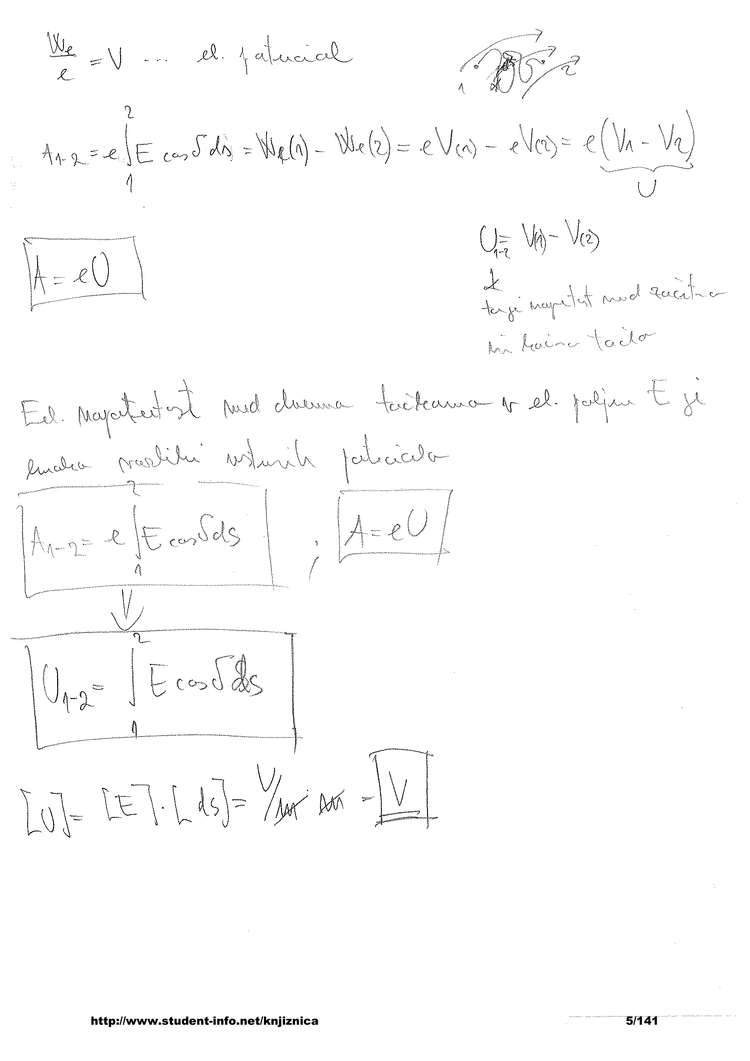 We/e = V ... el. potencial
1 2
A₁₋₂ = e ∫₁² E cos δ ds = We(1) - We(2) = eV(1) - eV(2) = e(V₁ - V₂)
U
U₁₋₂ = V(1) - V(2)
A = eU
med
točko
El. napetost med dvema točkama v el. polju E je
enaka razliki potenciala
A₁₋₂ = e ∫₁² E cos δ ds ; A = eU
U₁₋₂ = ∫₁² E cos δ ds
[U] = [E]·[ds] = V/m m = V
http://www.student-info.net/knjiznica 5/141